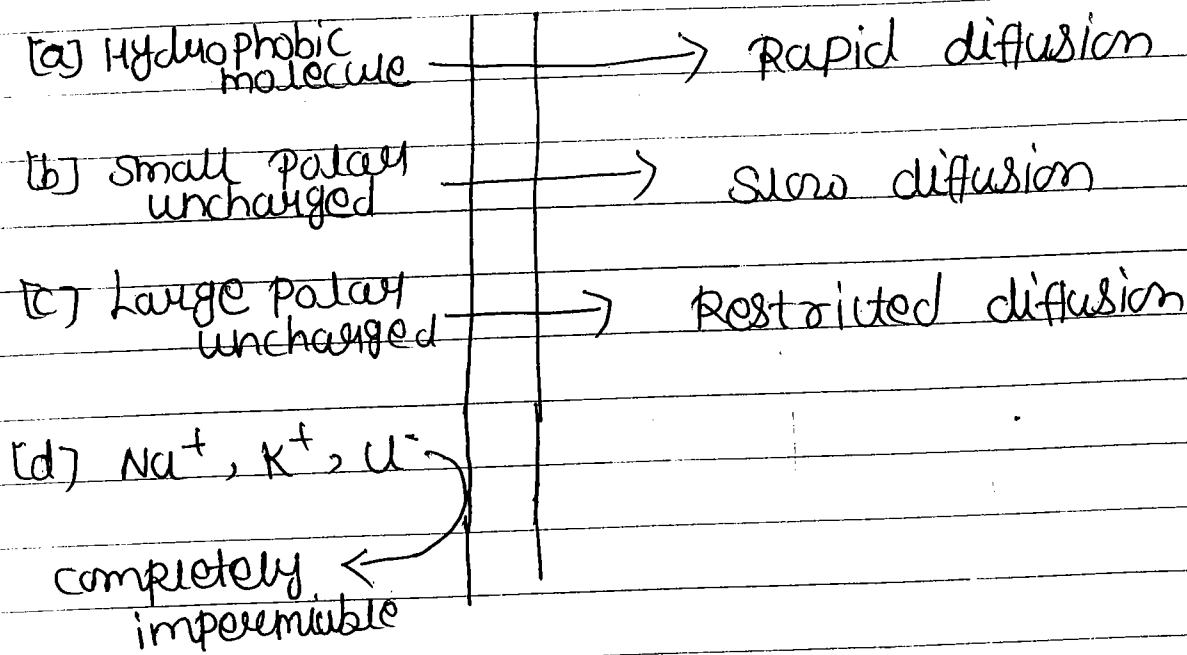 [a] Hydrophobic
molecule → Rapid diffusion
[b] small polar
uncharged → Slow diffusion
[c] Large polar
uncharged → Restricted diffusion
[d] Na⁺, K⁺, Cl⁻
completely
impermiable